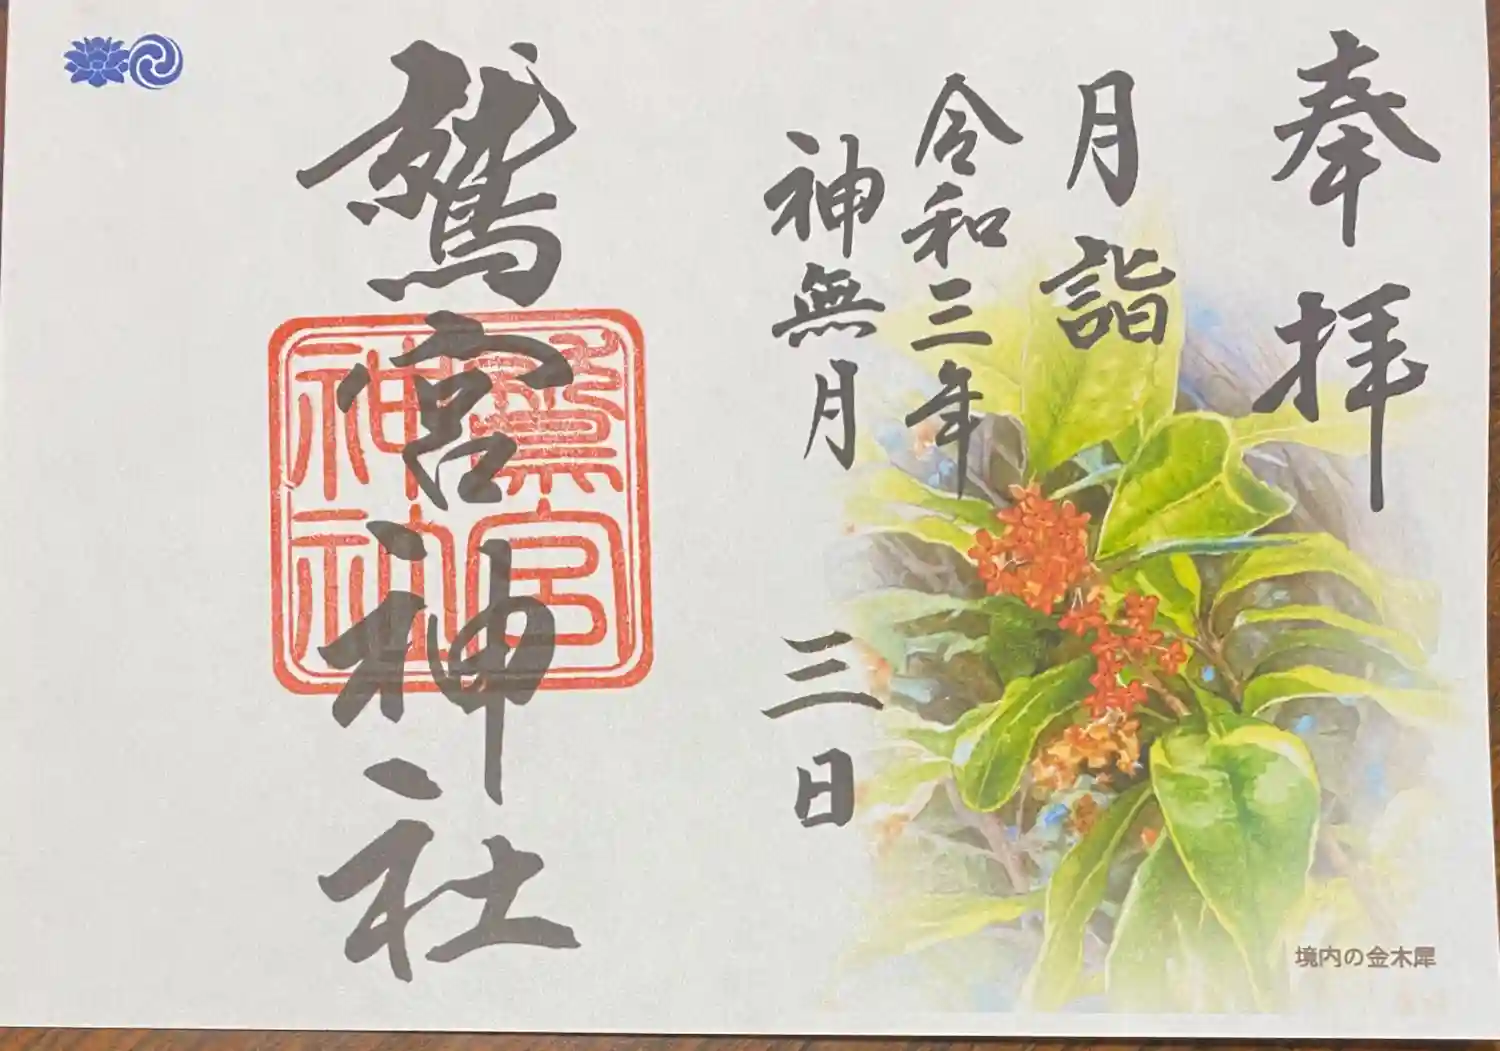 奉拝
月詣
令和三年
神無月 三日
鷲宮神社
鷲宮
神社
境内の金木犀